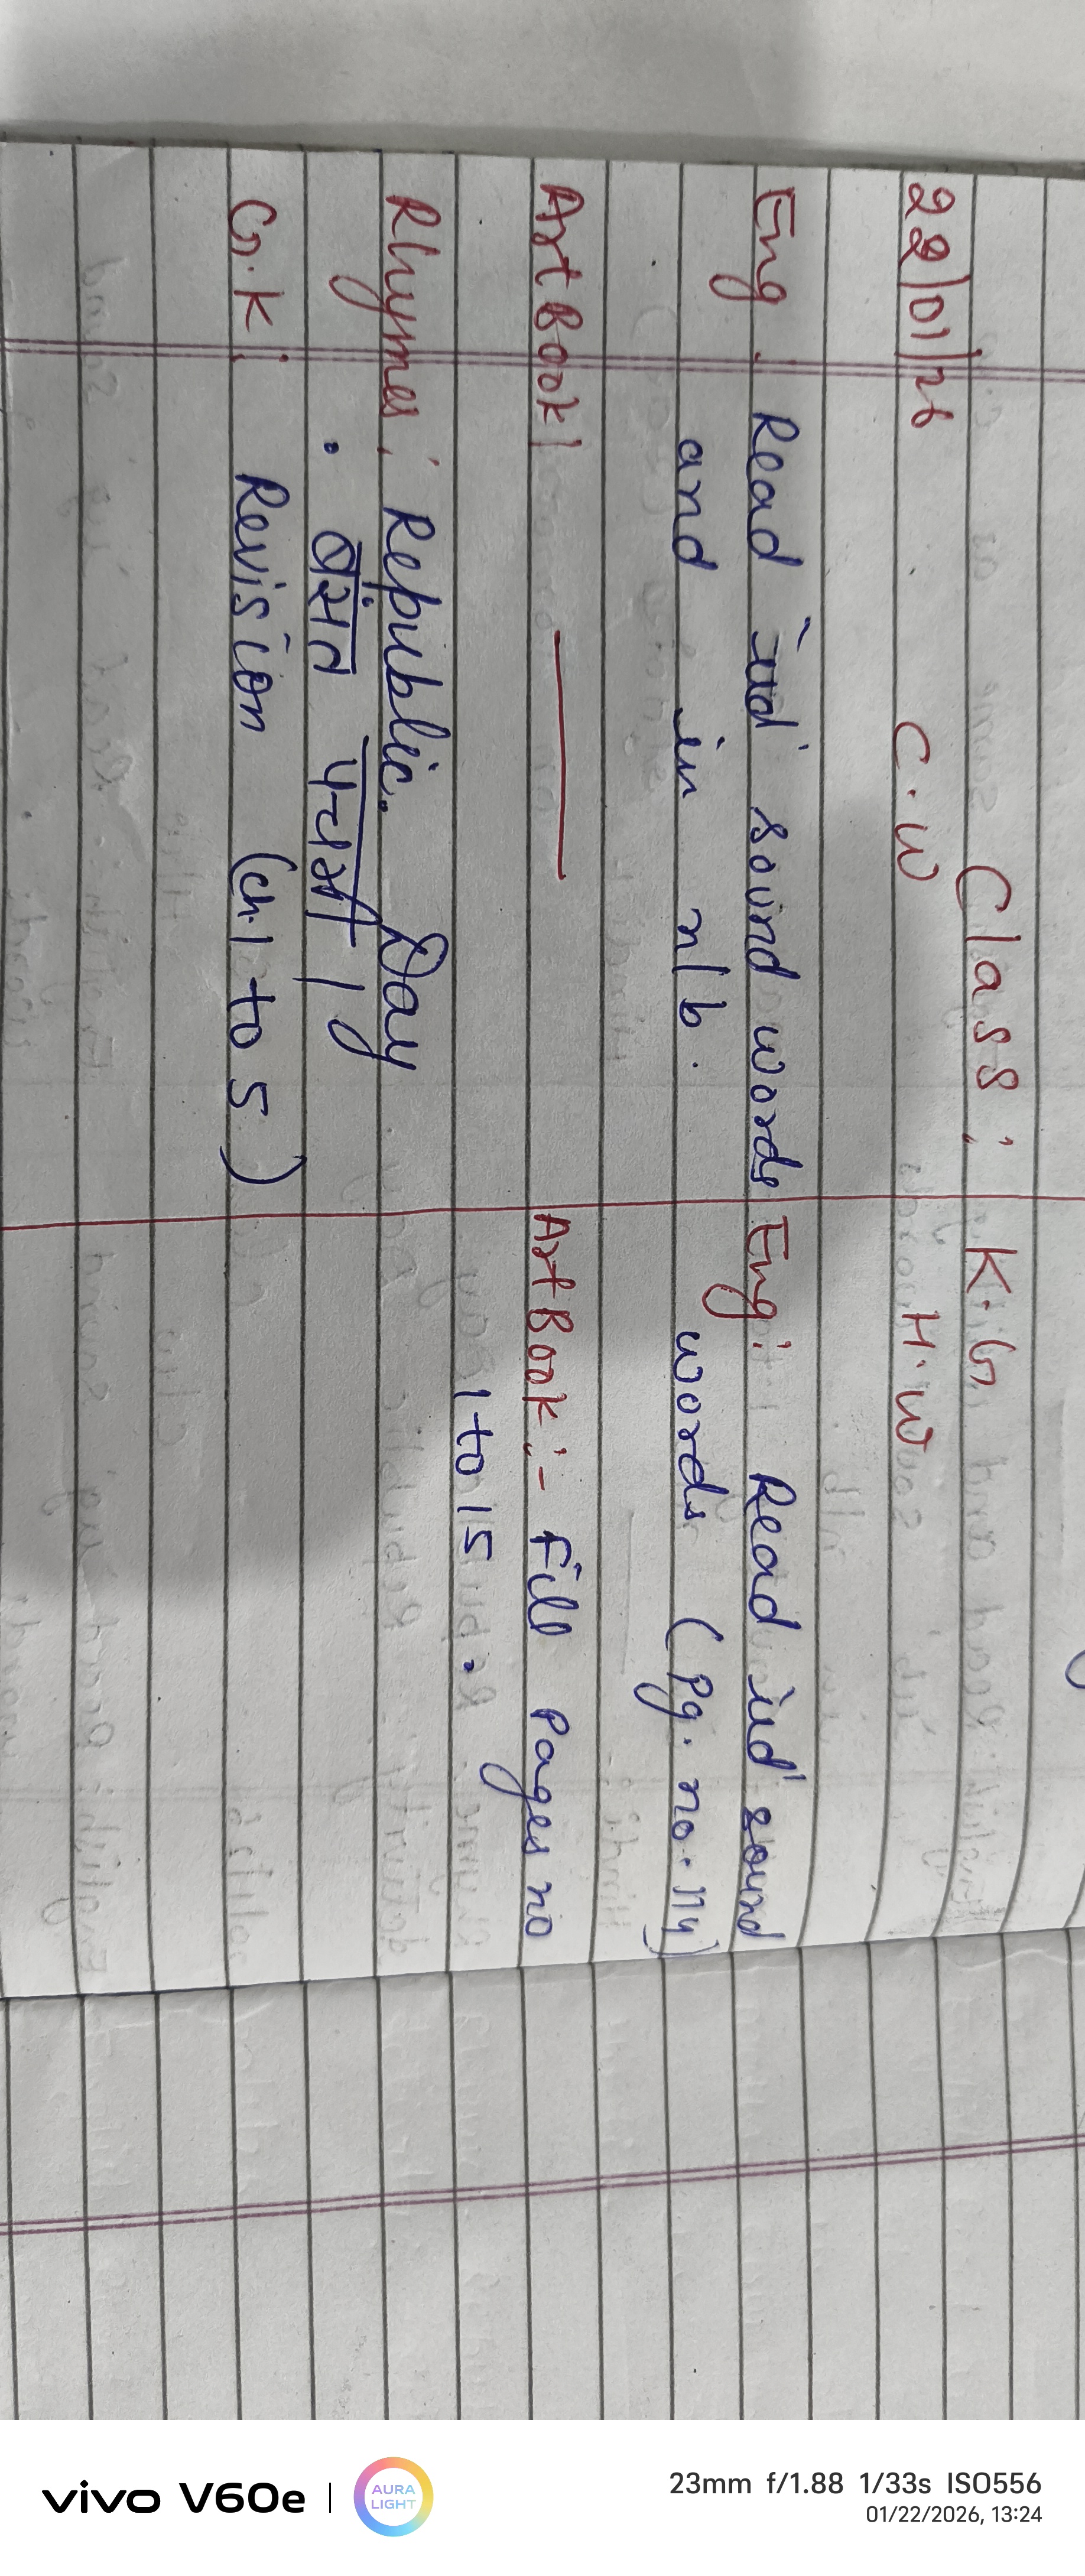 Class : K.G
22/01/26 C.W H.W
Eng : Read 'ud' sound words Eng : Read 'ud' sound
and in n/b. words (Pg. no. 114)
Art Book : Art Book :- Fill Pages no
1 to 15.
Rhymes : Republic Day
. बसंत पंचमी ।
G.K : Revision (ch.1 to 5)
vivo V60e | AURA LIGHT 23mm f/1.88 1/33s ISO556
01/22/2026, 13:24